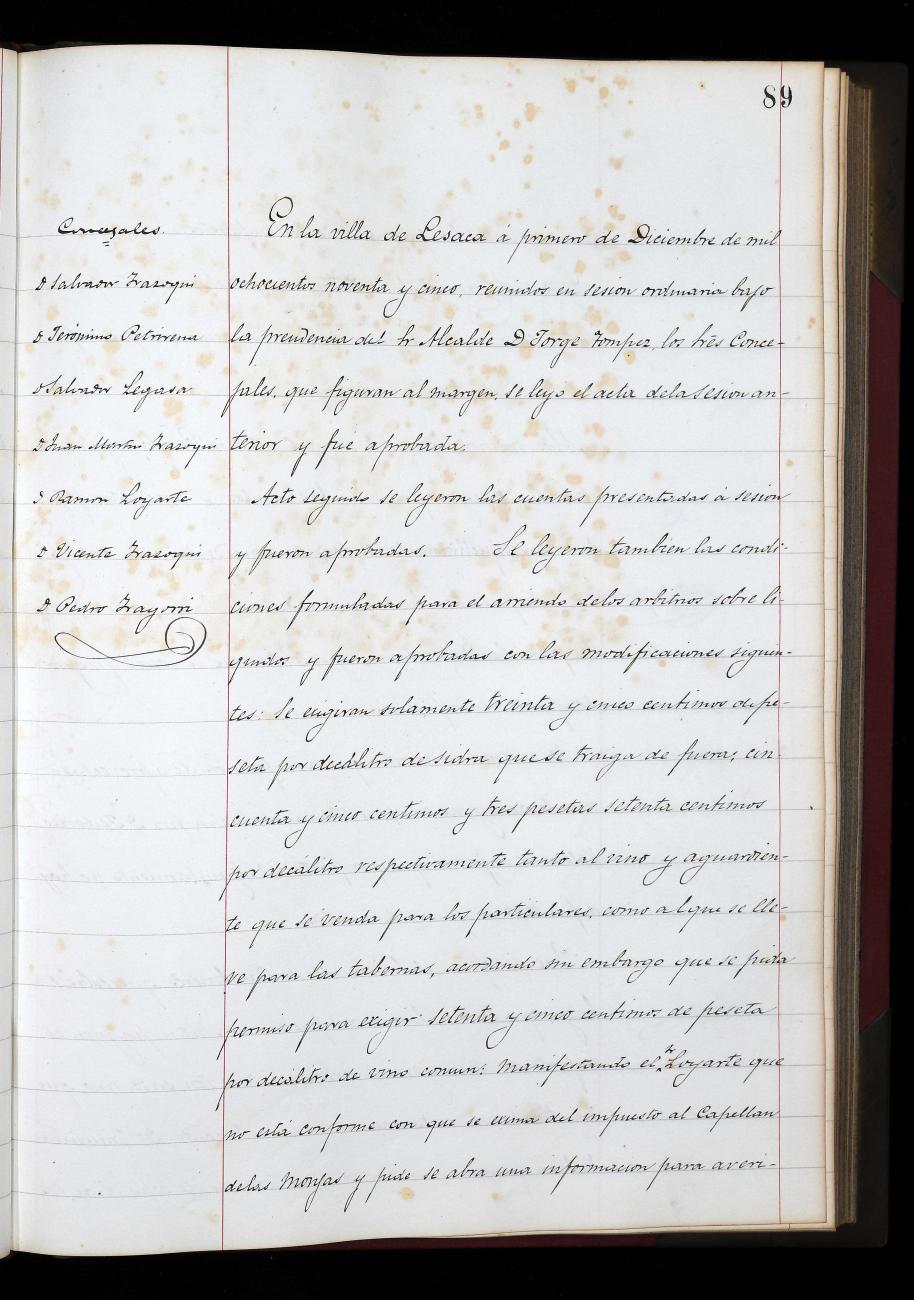 89
Concejales.
D Salvador Irazoqui
D Jerónimo Petrirena
D Salvador Legasa
D Juan Martin Irazoqui
D Ramon Loyarte
D Vicente Irazoqui
D Pedro Irayorri
En la villa de Lesaca á primero de Diciembre de mil
ochocientos noventa y cinco, reunidos en sesion ordinaria bajo
la presidencia del Sr Alcalde D Jorge los Sres Conce-
jales, que figuran al margen, se leyó el acta de la sesion an-
terior y fue aprobada.
Acto seguido se leyeron las cuentas presentadas á sesion
y fueron aprobadas. Se leyeron tambien las condi-
ciones formuladas para el arriendo de los arbitrios sobre li-
quidos y fueron aprobadas con las modificaciones siguien-
tes: Se exigiran solamente treinta y cinco centimos de pe-
seta por decálitro de sidra que se traiga de fuera; cin-
cuenta y cinco centimos y tres pesetas setenta centimos
por decálitro respectivamente tanto al vino y aguardien-
te que se venda para los particulares, como al que se lle-
ve para las tabernas, acordando sin embargo que se pida
permiso para exigir setenta y cinco centimos de peseta
por decálitro de vino comun: Manifestando el Sr Loyarte que
no está conforme con que se exima del impuesto al Capellan
de las Monjas y pide se abra una informacion para averi-